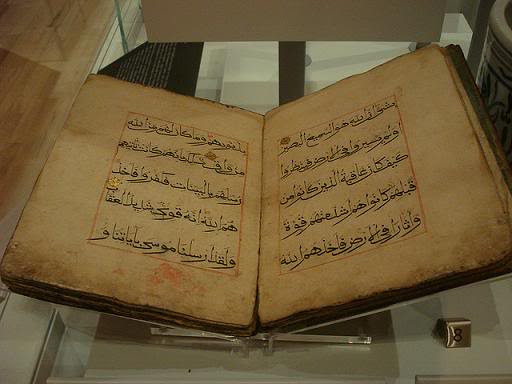 بشيء ان الله هو السميع البصير
اولم يسيروا في الارض فينظروا
كيف كان عاقبة الذين كانوا من
قبلهم كانوا هم اشد منهم قوة
واثارا في الارض فاخذهم الله
بذنوبهم وما كان لهم من الله
من واق ذلك بانهم كانت تاتيهم
رسلهم بالبينات فكفروا فاخذ
هم الله انه قوي شديد العقاب
ولقد ارسلنا موسى باياتنا و
8